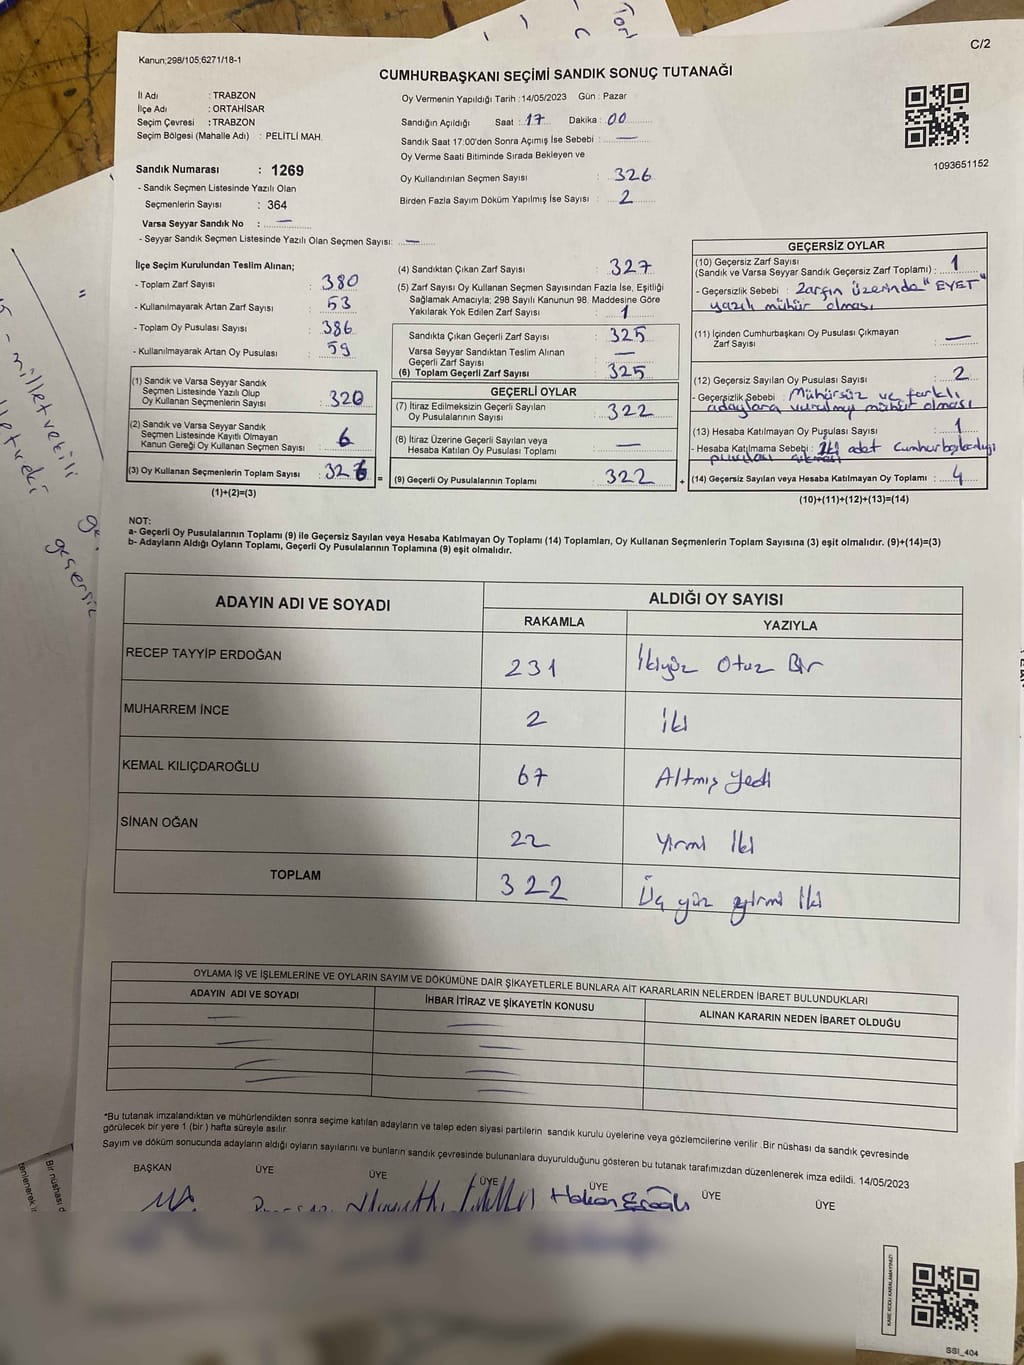 C/2
Kanun;298/105;6271/18-1
CUMHURBAŞKANI SEÇİMİ SANDIK SONUÇ TUTANAĞI
İl Adı : TRABZON
İlçe Adı : ORTAHİSAR
Seçim Çevresi : TRABZON
Seçim Bölgesi (Mahalle Adı) : PELİTLİ MAH.
Oy Vermenin Yapıldığı Tarih : 14/05/2023 Gün : Pazar
Sandığın Açıldığı Saat : 17 Dakika : 00
Sandık Saat 17:00'den Sonra Açımış İse Sebebi : —
Oy Verme Saati Bitiminde Sırada Bekleyen ve
Oy Kullandırılan Seçmen Sayısı : 326
Birden Fazla Sayım Döküm Yapılmış İse Sayısı : 2
1093651152
Sandık Numarası : 1269
- Sandık Seçmen Listesinde Yazılı Olan
Seçmenlerin Sayısı : 364
Varsa Seyyar Sandık No : —
- Seyyar Sandık Seçmen Listesinde Yazılı Olan Seçmen Sayısı: —
İlçe Seçim Kurulundan Teslim Alınan;
- Toplam Zarf Sayısı : 380
- Kullanılmayarak Artan Zarf Sayısı : 53
- Toplam Oy Pusulası Sayısı : 386
- Kullanılmayarak Artan Oy Pusulası : 59
(1) Sandık ve Varsa Seyyar Sandık
Seçmen Listesinde Yazılı Olup
Oy Kullanan Seçmenlerin Sayısı : 320
(2) Sandık ve Varsa Seyyar Sandık
Seçmen Listesinde Kayıtlı Olmayan
Kanun Gereği Oy Kullanan Seçmen Sayısı : 6
(3) Oy Kullanan Seçmenlerin Toplam Sayısı : 326 =
(1)+(2)=(3)
(4) Sandıktan Çıkan Zarf Sayısı : 327
(5) Zarf Sayısı Oy Kullanan Seçmen Sayısından Fazla İse, Eşitliği
Sağlamak Amacıyla; 298 Sayılı Kanunun 98. Maddesine Göre
Yakılarak Yok Edilen Zarf Sayısı : 1
Sandıkta Çıkan Geçerli Zarf Sayısı : 325
Varsa Seyyar Sandıktan Teslim Alınan
Geçerli Zarf Sayısı : —
(6) Toplam Geçerli Zarf Sayısı : 325
GEÇERLİ OYLAR
(7) İtiraz Edilmeksizin Geçerli Sayılan
Oy Pusulalarının Sayısı : 322
(8) İtiraz Üzerine Geçerli Sayılan veya
Hesaba Katılan Oy Pusulası Toplamı : —
(9) Geçerli Oy Pusulalarının Toplamı : 322 +
GEÇERSİZ OYLAR
(10) Geçersiz Zarf Sayısı
(Sandık ve Varsa Seyyar Sandık Geçersiz Zarf Toplamı) : 1
- Geçersizlik Sebebi : Zarfın üzerinde "EVET"
yazılı mühür olması
(11) İçinden Cumhurbaşkanı Oy Pusulası Çıkmayan
Zarf Sayısı : —
(12) Geçersiz Sayılan Oy Pusulası Sayısı : 2
- Geçersizlik Sebebi : Mühürsüz ve farklı
adaylara vurulmuş mühür olması
(13) Hesaba Katılmayan Oy Pusulası Sayısı : 1
- Hesaba Katılmama Sebebi : İki adet Cumhurbaşkanlığı
pusulası çıkması
(14) Geçersiz Sayılan veya Hesaba Katılmayan Oy Toplamı : 4
(10)+(11)+(12)+(13)=(14)
NOT:
a- Geçerli Oy Pusulalarının Toplamı (9) ile Geçersiz Sayılan veya Hesaba Katılmayan Oy Toplamı (14) Toplamları, Oy Kullanan Seçmenlerin Toplam Sayısına (3) eşit olmalıdır. (9)+(14)=(3)
b- Adayların Aldığı Oyların Toplamı, Geçerli Oy Pusulalarının Toplamına (9) eşit olmalıdır.
ADAYIN ADI VE SOYADI
ALDIĞI OY SAYISI
RAKAMLA YAZIYLA
RECEP TAYYİP ERDOĞAN 231 İkiyüz Otuz Bir
MUHARREM İNCE 2 İki
KEMAL KILIÇDAROĞLU 67 Altmış Yedi
SİNAN OĞAN 22 Yirmi İki
TOPLAM 322 Üç yüz yirmi İki
OYLAMA İŞ VE İŞLEMLERİNE VE OYLARIN SAYIM VE DÖKÜMÜNE DAİR ŞİKAYETLERLE BUNLARA AİT KARARLARIN NELERDEN İBARET BULUNDUKLARI
ADAYIN ADI VE SOYADI İHBAR İTİRAZ VE ŞİKAYETİN KONUSU ALINAN KARARIN NEDEN İBARET OLDUĞU
*Bu tutanak imzalandıktan ve mühürlendikten sonra seçime katılan adayların ve talep eden siyasi partilerin sandık kurulu üyelerine veya gözlemcilerine verilir. Bir nüshası da sandık çevresinde
görülecek bir yere 1 (bir ) hafta süreyle asılır.
Sayım ve döküm sonucunda adayların aldığı oyların sayılarını ve bunların sandık çevresinde bulunanlara duyurulduğunu gösteren bu tutanak tarafımızdan düzenlenerek imza edildi. 14/05/2023
BAŞKAN ÜYE ÜYE ÜYE ÜYE ÜYE ÜYE
Hakan Eroğlu
KARE KODU KARALAMAYINIZ!
SSI_404
milletvekili
geçersiz
Bir nüshası d